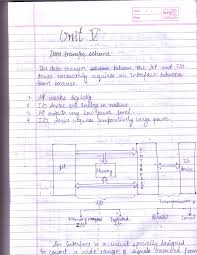 Unit V
Data transfer scheme
The data transfer scheme between the μP and I/O
devices necessarily requires an interface between
them because
1 μP works digitally
2 I/O device are analog in nature
3 μP outputs very low power level
4 I/O device requires comparatively large power.
μP
Memory
INTERFACE
I/O
device
Memory mapped
I/O
I/O
Serial
An interface is a circuit specially designed
to convert a wide range of signals received from